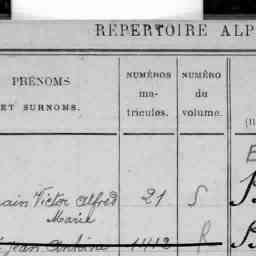 RÉPERTOIRE ALP
PRÉNOMS
ET SURNOMS.
NUMÉROS
ma-
tricules.
NUMÉRO
du
volume.
ain Victor Alfred 21 S
Marie
Jean Antoine 1412 R